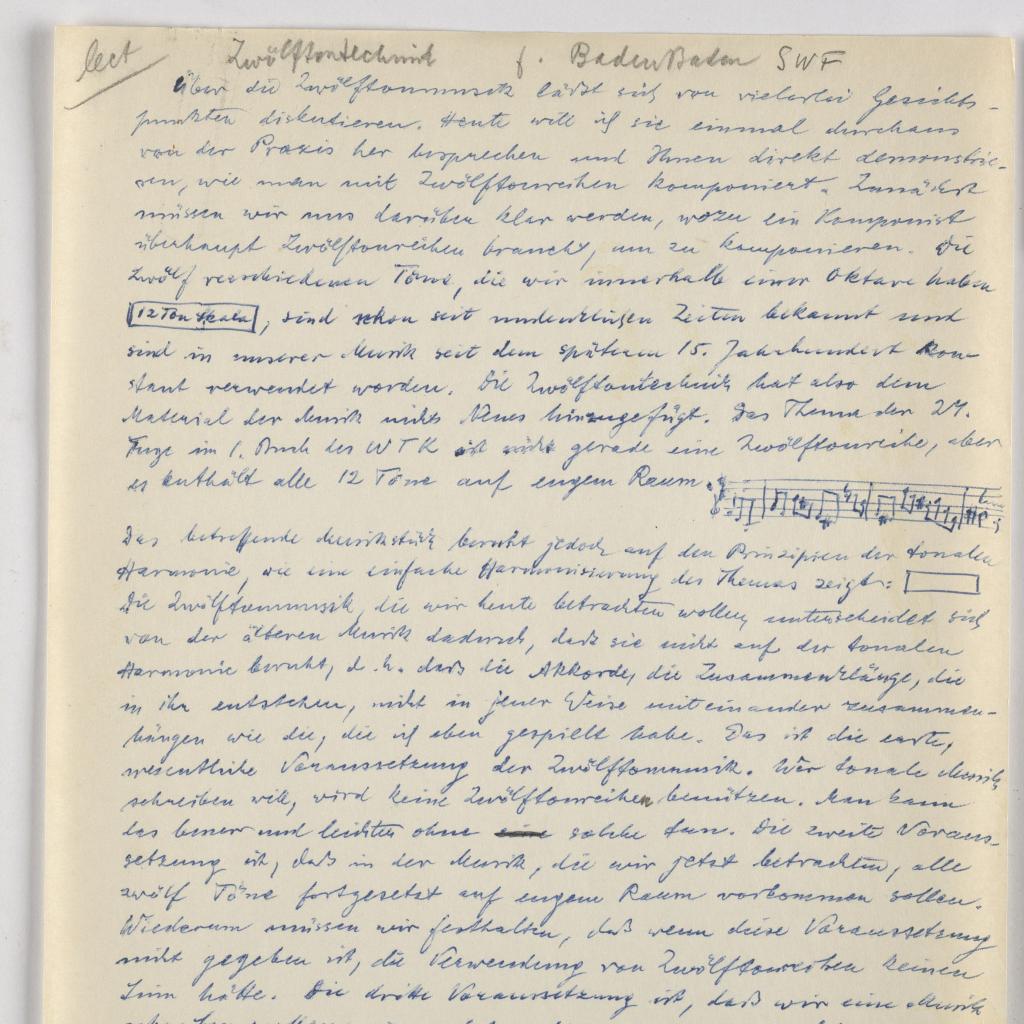 lect Zwölftontechnik f. BadenBaden SWF
Über die Zwölftonmusik läßt sich von vielerlei Gesichts-
punkten diskutieren. Heute will ich sie einmal durchaus
von der Praxis her besprechen und Ihnen direkt demonstrie-
ren, wie man mit Zwölftonreihen komponiert. Zunächst
müssen wir uns darüber klar werden, wozu ein Komponist
überhaupt Zwölftonreihen braucht, um zu komponieren. Die
zwölf verschiedenen Töne, die wir innerhalb einer Oktave haben
12 Ton Skala, sind schon seit undenklichen Zeiten bekannt und
sind in unserer Musik seit dem späteren 15. Jahrhundert kon-
stant verwendet worden. Die Zwölftontechnik hat also dem
Material der Musik nichts Neues hinzugefügt. Das Thema der 24.
Fuge im 1. Buch des WTK ist nicht gerade eine Zwölftonreihe, aber
es enthält alle 12 Töne auf engem Raum.
Das betreffende Musikstück beruht jedoch auf den Prinzipien der tonalen
Harmonie, wie eine einfache Harmonisierung des Themas zeigt:
Die Zwölftonmusik, die wir heute betrachten wollen, unterscheidet sich
von der älteren Musik dadurch, daß sie nicht auf der tonalen
Harmonie beruht, d.h. daß die Akkorde, die Zusammenklänge, die
in ihr entstehen, nicht in jener Weise miteinander zusammen-
hängen wie die, die ich eben gespielt habe. Das ist die erste,
wesentliche Voraussetzung der Zwölftonmusik. Wer tonale Musik
schreiben will, wird keine Zwölftonreihen benützen. Man kann
das besser und leichter ohne solche tun. Die zweite Voraus-
setzung ist, daß in der Musik, die wir jetzt betrachten, alle
zwölf Töne fortgesetzt auf engem Raum vorkommen sollen.
Wiederum müssen wir festhalten, daß wenn diese Voraussetzung
nicht gegeben ist, die Verwendung von Zwölftonreihen keinen
Sinn hätte. Die dritte Voraussetzung ist, daß wir eine Musik